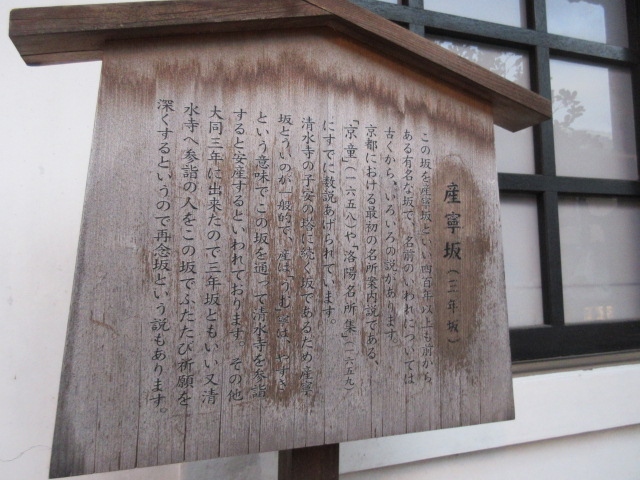 産寧坂(三年坂)
この坂を産寧坂といい四百年以上も前から
ある有名な坂で、名前のいわれについては
古くから、いろいろの説があります。
京都における最初の名所案内説である、
「京童」(一六五八)や「洛陽名所集」(一六五九)
にすでに数説あげられています。
清水寺の子安の塔に続く坂であるため産寧
坂というのが一般的で、産は「うむ」寧は「やすき」
という意味でこの坂を通って清水寺を参詣
すると安産するといわれております。その他
大同三年に出来たので三年坂ともいい又清
水寺へ参詣の人をこの坂でふたたび祈願を
深くするというので再念坂という説もあります。